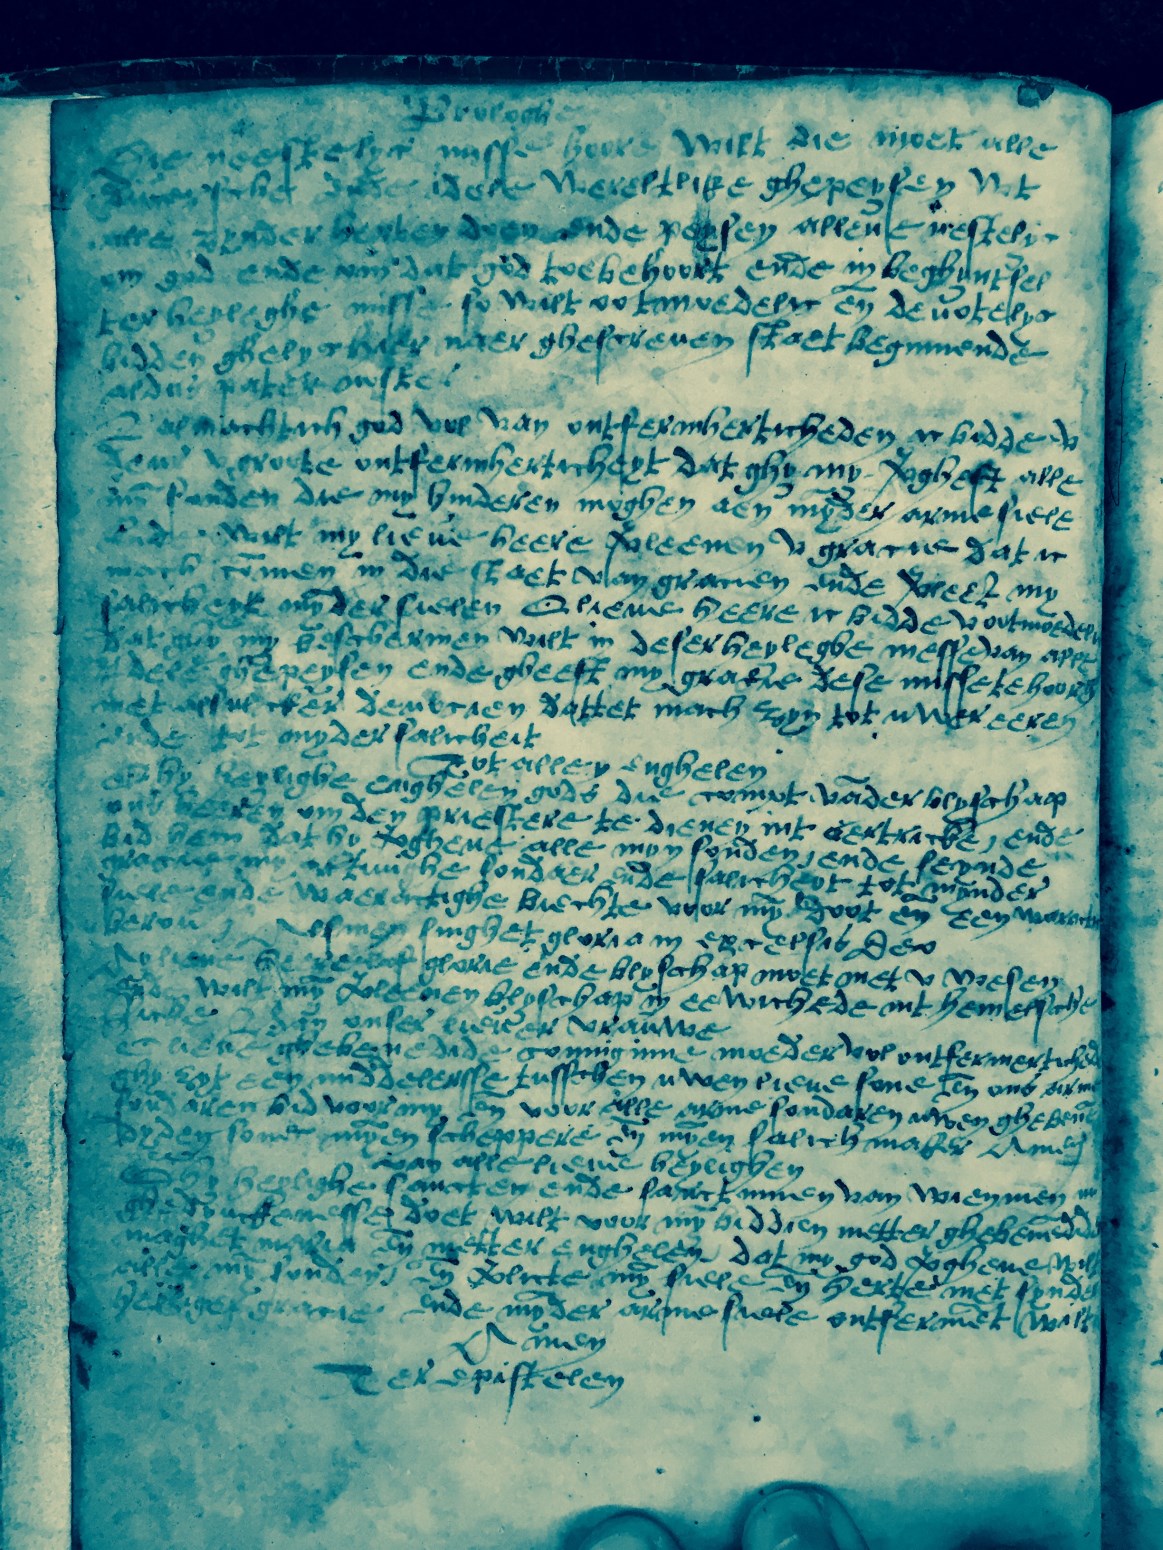 Prologhe
Die gheestelyc misse hoore wilt die moet alle
ende idele wereltlike ghepeysen wt
alle zynder herten doen ende peysen alleene gestelyc
om god ende om dat god toebehoort ende in beghuntsel
ter heyleghe misse so wilt ootmoedelic eñ devotelyc
bidden ghelyc hier naer ghescreven staet beginnende
aldus pater noster
O almachtich god vol van ontfermherticheden ic bidde v
deur v groote ontfermherticheyt dat ghy my vgheeft alle
mỹ sonden die my hinderen moghen aen mynder arme siele
Ende wilt my lieve heere vleenen v gracie dat ic
mach commen in die staet van gracien ende vleent my
salicheyt mynder sielen O lieve heere ic bidde v ootmoedelic
dat ghy my beschermen wilt in deser heyleghe messe van alle
ydele ghepeysen ende gheeft my gratie dese misse te hooren
met alsulcker devocien dattet mach zyn tot uwer eeren
ende tot mynder salicheit
Tot allen enghelen
Ghy heylighe enghelen gods die comt vader blyschap
ons heeren om den priestere te dienen int ende
bid hem dat hy vgheve alle myn sonden, ende seynde
gracie my sondaer ende salicheyt tot mynder
siele ende waerachtighe biechte voor mỹ doot eñ een warach
berou Alsmen singhet gloria in excelsis deo
My lieve heere lof glorie ende blyschap moet met v wesen
Ende wilt mỹ vleenen blyschap in eewichede int hemelsche
van onser liever vrauwe
O lieve ghebenedide coninginne moeder vol ontfermerticheden
ghy zyt een middelersse tusschen uwen lieve sone eñ ons arme
sondaren bid voor my eñ voor alle arme sondaren uwen ghebene
dyden sone myen scheppere eñ myen salichmaker Amen
van alle lieve heylighen
Ghy heylighe sancten ende sanctinnen van wienmen
doet wilt voor mỹ bidden metter ghebenedide
maghet maria eñ metter enghelen dat my god vgheve wilt
alle mỹ sonden eñ vlichte mỹ siele eñ herte met synder
heiliger gracie ende mynder arme siele ontfermet wilt
Amen
Ter epistelen